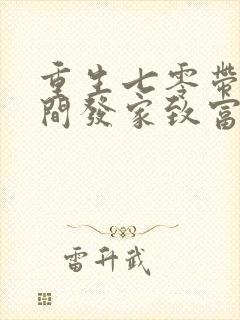 重生七零帶
間發家致富
雷升武